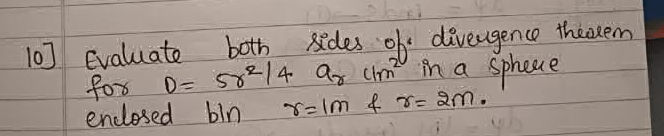 10] Evaluate both sides of divergence theorem
for D = 5r²/4 ar c/m² in a sphere
enclosed b/n r=1m & r=2m.